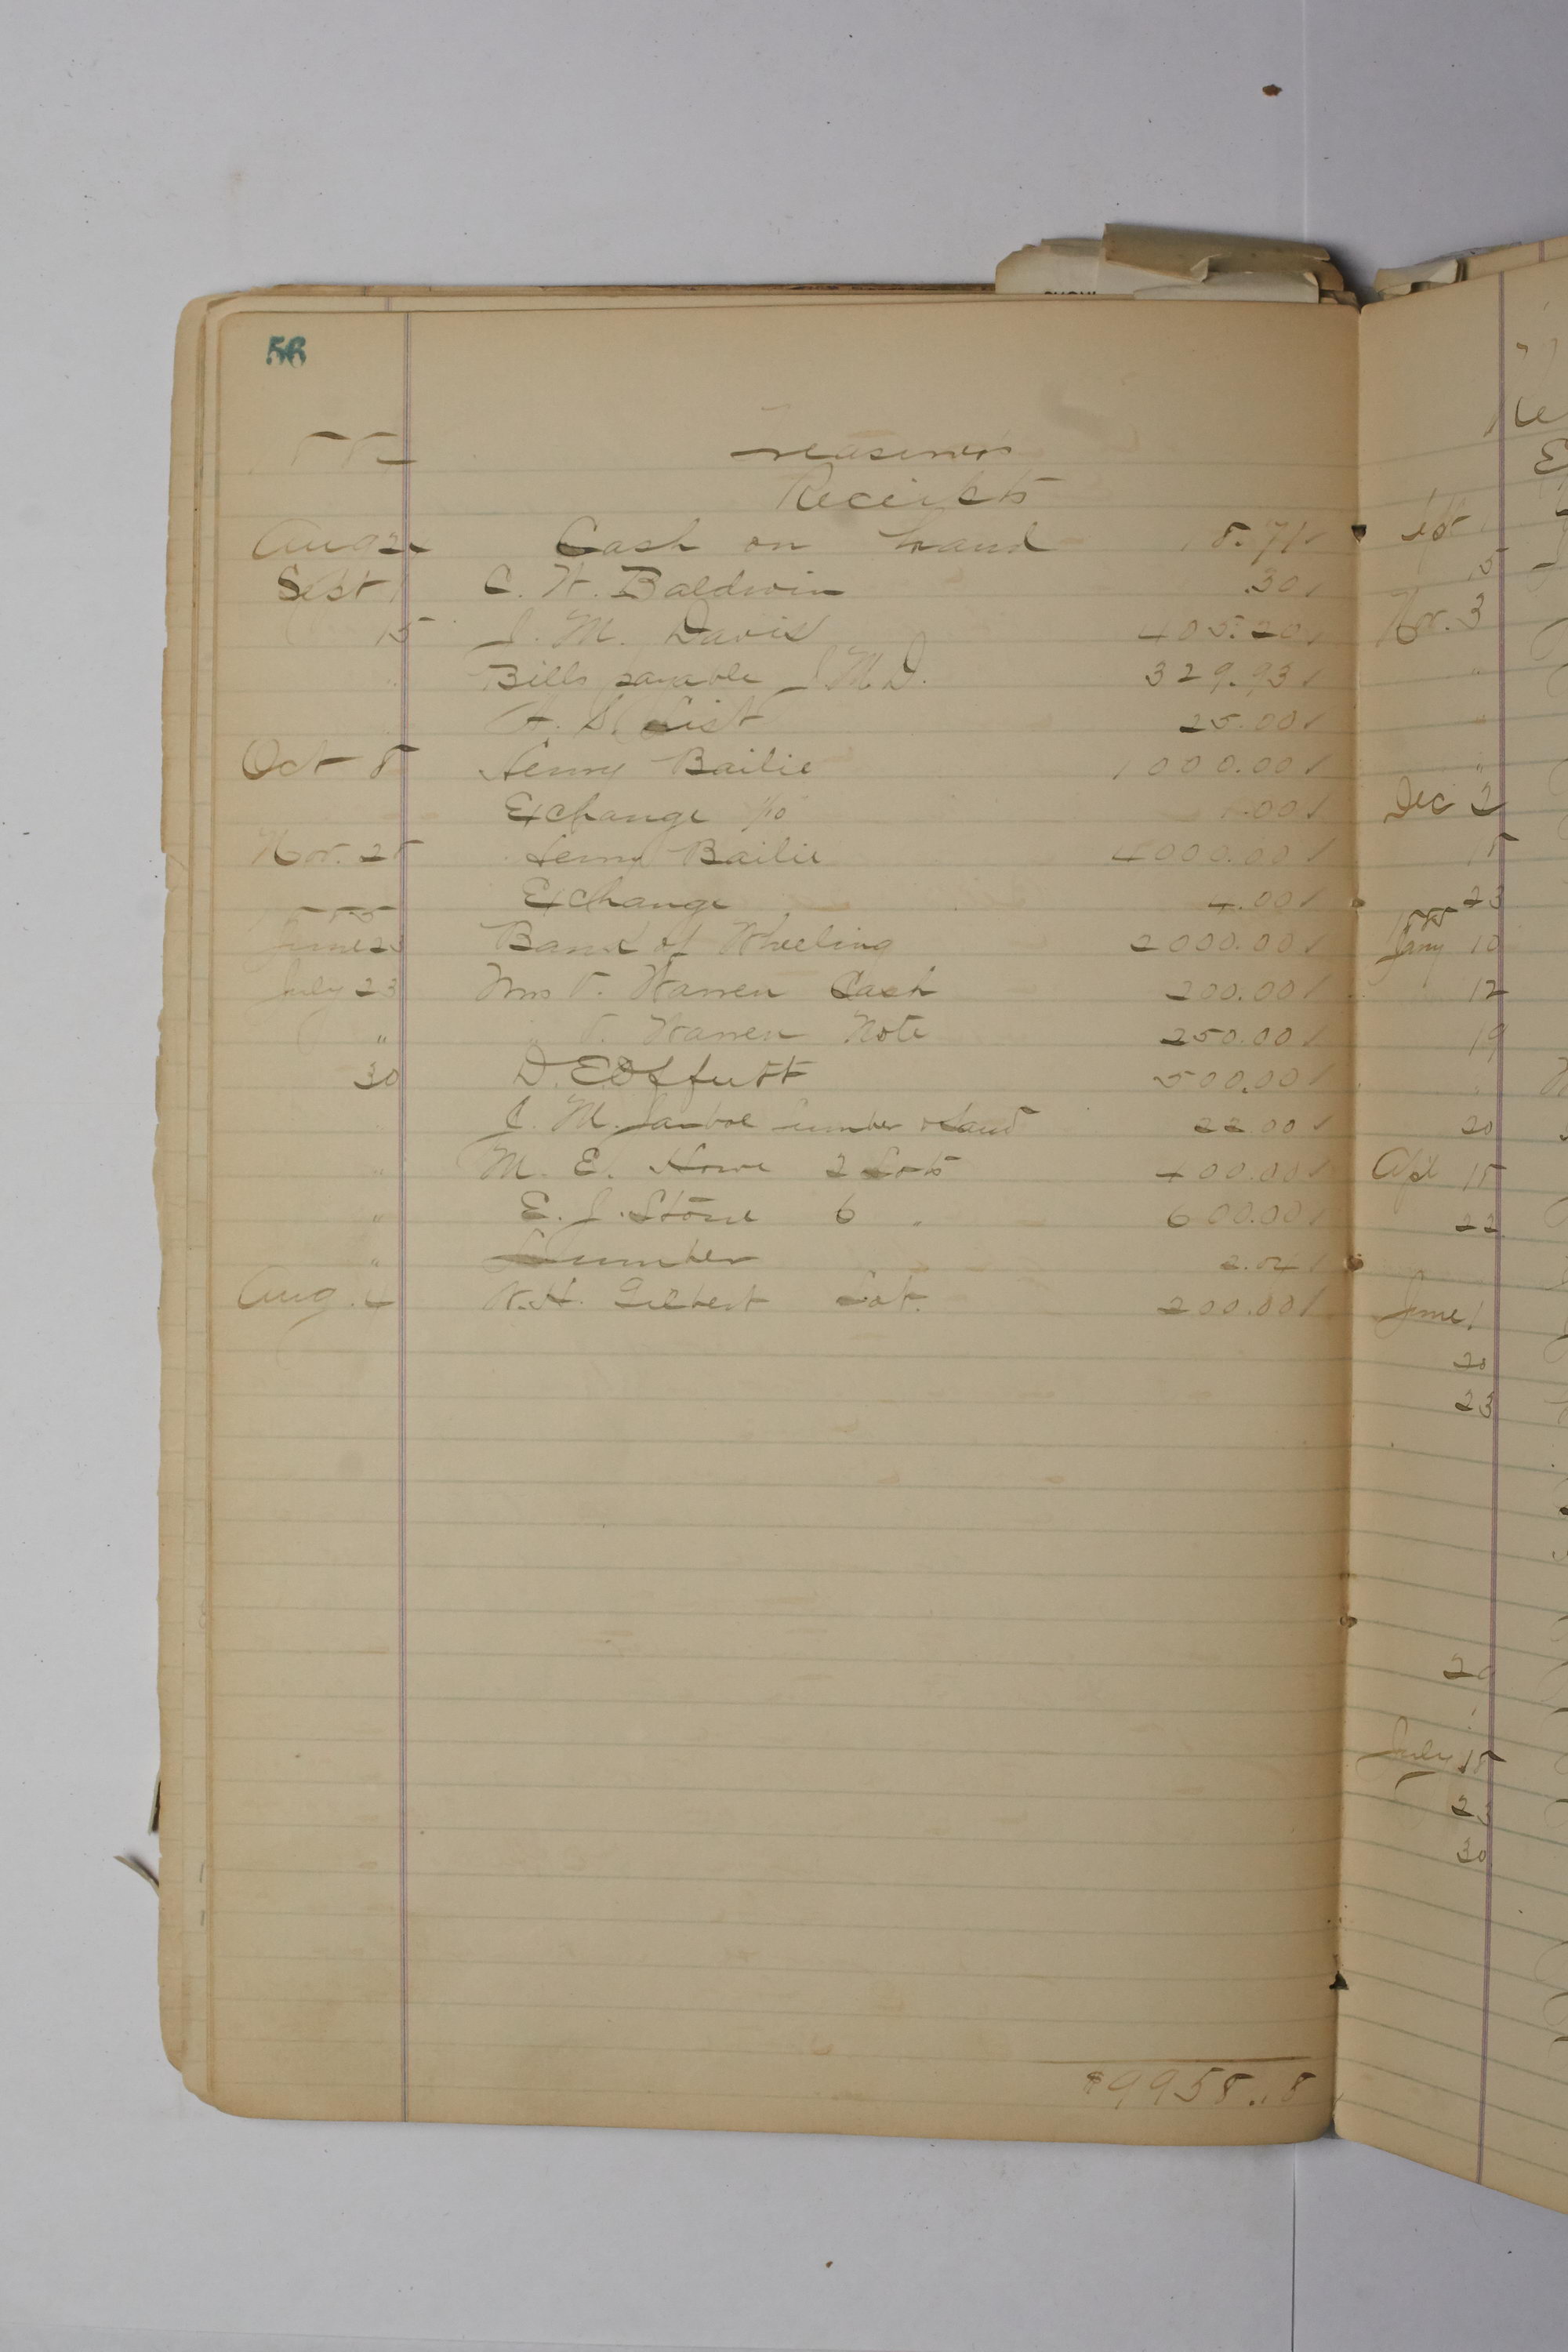 56
Treasurers
Receipts
Aug 21 Cash on hand 18.71
Sept 1 C. W. Baldwin .30
15 J. M. Davis 405.20
" Bills payable J M D. 329.93
A. S. List 25.00
Oct 8 Henry Bailie 1000.00
Exchange 1/10 1.00
Nov. 28 Henry Bailie 4000.00
Exchange 4.00
1885
June 23 Bank of Wheeling 2000.00
July 23 Mrs V. Warren Cash 200.00
" " V. Warren Note 250.00
30 D. E. Offutt 500.00
C. M. lumber & Land 22.00
" M. E. Howe 2 Lots 400.00
" E. J. Stone 6 " 600.00
" Lumber 2.04
Aug. 4 W. H. Gilbert Lot. 200.00
$9958.18
Sept 1
15
Nov. 3
"
"
"
Dec 2
18
23
1885
Jany 10
12
19
"
20
Apl 18
22
June 1
20
23
20
July 18
23
30